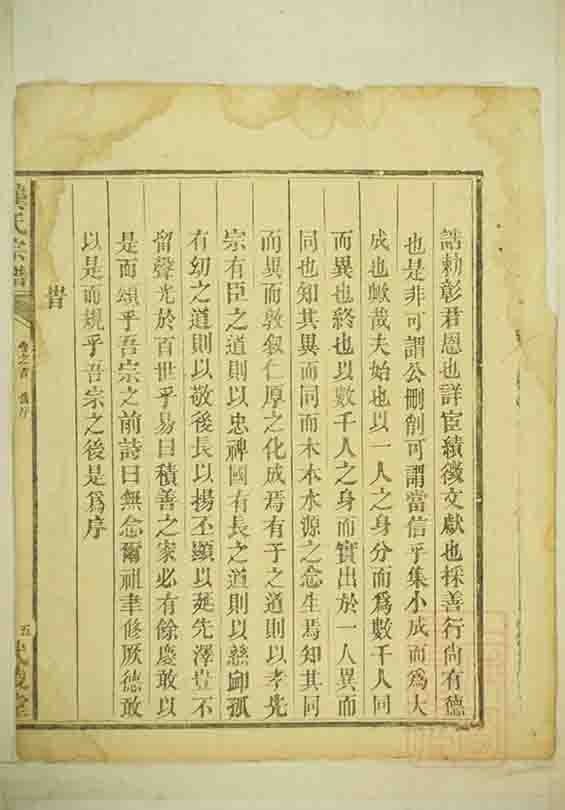 誥勅彰君恩也詳宦績徵文獻也採善行尙有德
也是非可謂公刪削可謂當信乎集小成而爲大
成也歟哉夫始也以一人之身分而爲數千人同
而異也終也以數千人之身而實出於一人異而
同也知其異而同而木本水源之念生焉知其同
而異而敦叙仁厚之化成焉有子之道則以孝先
宗有臣之道則以忠裨國有長之道則以慈卹孤
有幼之道則以敬後長以揚丕顯以延先澤豈不
留聲光於百世乎易曰積善之家必有餘慶敢以
是而頌乎吾宗之前詩曰無念爾祖聿修厥德敢
以是而規乎吾宗之後是爲序
旹
氏宗譜
卷之首
序
五